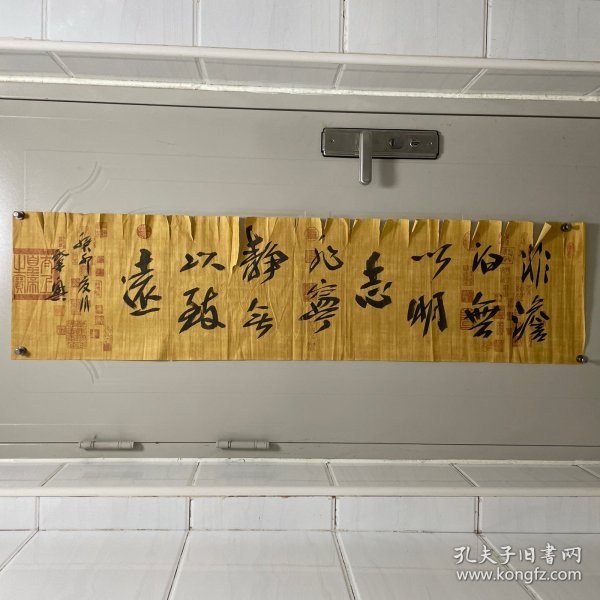 非澹
泊無
以明
志
非寧
靜無
以致
遠
癸卯夏月
孔夫子旧书网
www.kongfz.com